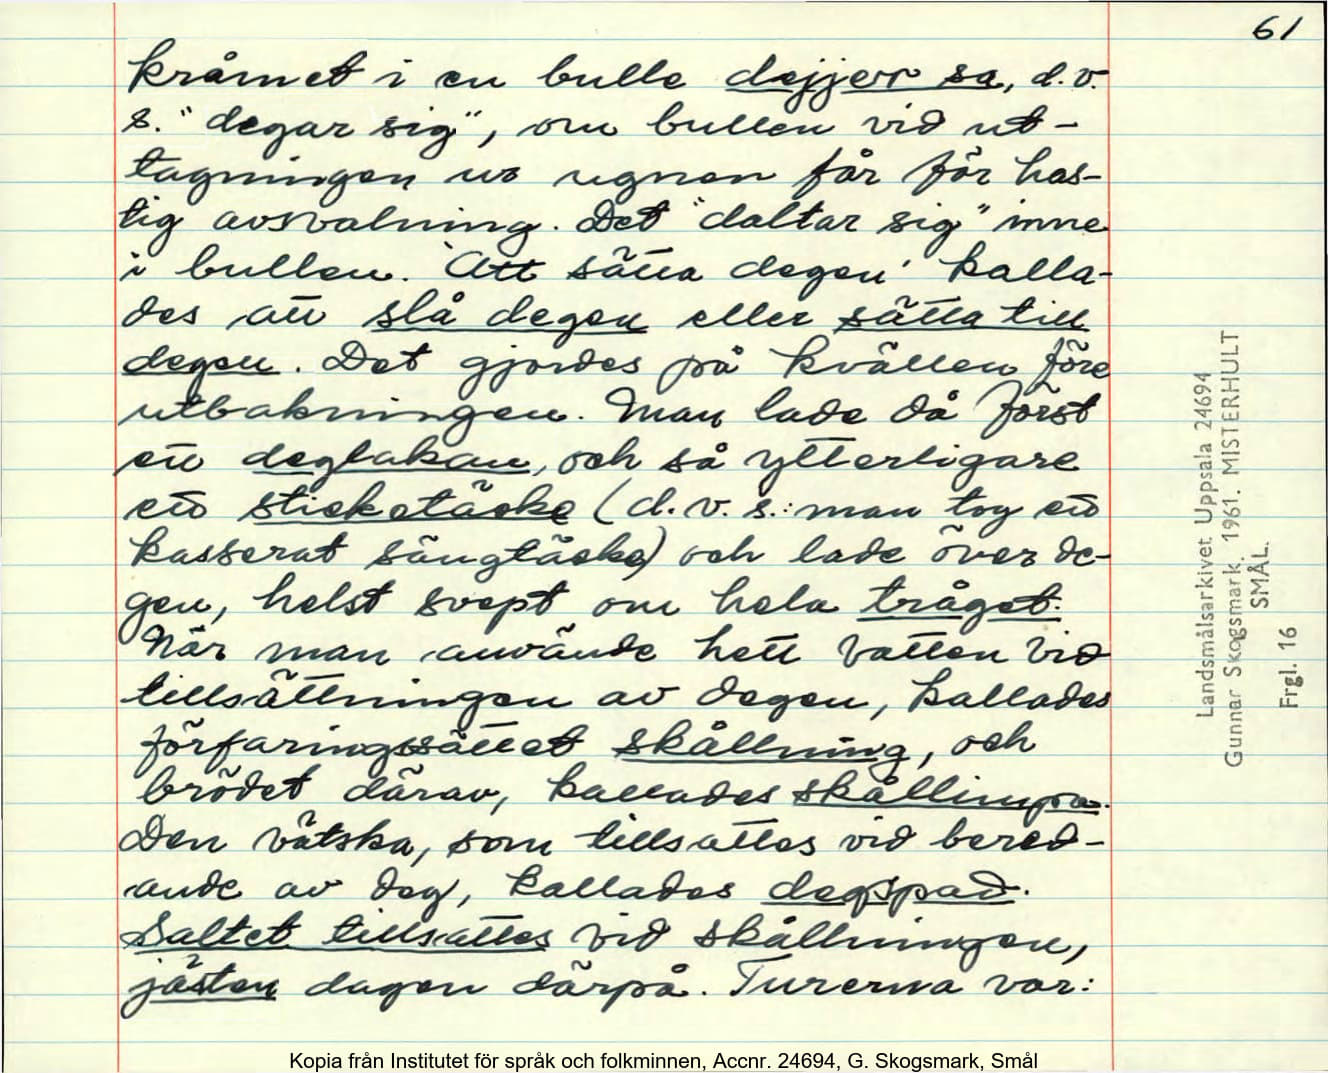 61
kråmet i en bulle dejjerr sa, d.v.
s. "degar sig", om bullen vid ut-
tagningen ur ugnen får för has-
tig avsvalning. Det "daltar sig" inne
i bullen. 'Att sätta degen' kalla-
des att slå degen eller sätta till
degen. Det gjordes på kvällen före
utbakningen. Man lade då först
ett deglakan, och så ytterligare
ett sticketäcke (d.v.s.: man tog ett
kasserat sängtäcke) och lade över de-
gen, helst svept om hela tråget.
När man använde hett vatten vid
tillsättningen av degen, kallades
förfaringssättet skållning, och
brödet därav, kallades skållimpa.
Den vätska, som tillsattes vid bered-
ande av deg, kallades degspad.
Saltet tillsattes vid skållningen,
jästen dagen därpå. Turerna var:
Landsmålsarkivet Uppsala 24694
Gunnar Skogsmark. 1961. MISTERHULT
SMÅL.
Frgl. 16
Kopia från Institutet för språk och folkminnen, Accnr. 24694, G. Skogsmark, Smål